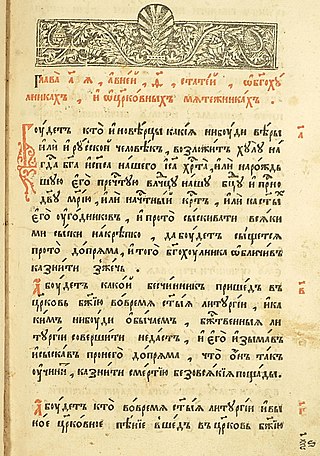 Глава҃ а҃ ѧ, а вней, ѳ҃, статїй, ѡбг҃охꙋ
лникахъ, и ѡцр҃ковныхъ мѧтежникахъ.
Боудетъ кто иновѣрцы какїѧ нибоуди вѣры
или и роуской человѣкъ, возложитъ хꙋлꙋ на
гдⷭа бг҃а испⷭса нашего іс҃а хрⷭта, или нарождь
шꙋю его пречⷭтꙋю влⷣчцꙋ нашꙋ бцⷣꙋ и прⷭно
двⷣꙋ мр҃їю, или начⷭтный крⷭтъ, или настыхъ
его оугодниковъ, и прото сыскивати всѧки
ми сыски накрѣпко, да боудетъ сыщетсѧ
прото допрѧма, и того бг҃охоулника ѡбличивъ
казнити зжечь.
а боудетъ какой бесчинникъ пришедъ въ
цр҃ковь бж҃їю вовремѧ ст҃ыѧ литоургїи, и ка
кимъ нибоуди ѡбычаемъ, бжⷭтвеныѧ ли
тоургїи совершити недастъ, и его изымавъ
и сыскавъ пронего допрѧма, что онъ такъ
оучинитъ, казнити смертїю безовсѧкїѧ пощады.
а боудетъ кто вовремѧ ст҃ыѧ литоургїи и вы
ное цр҃ковное пѣнїе вшедъ въ цр҃ковь бж҃їю